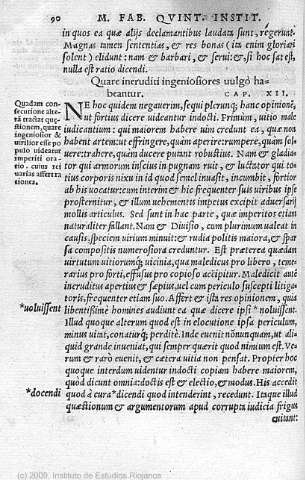 90 M. FAB. QVINT. INSTIT.
in quos ea quæ alijs declamantibus laudata sunt, regerunt.
Magnas tamen sententias, & res bonas (ita enim gloriari
solent) elidunt: nam & barbari, & serui: & si hoc sat est,
nulla est ratio dicendi.
Quare ineruditi ingeniosiores uulgò ha-
beantur. CAP. XII.
Quadam con-
suetudine al-
tâ tractat quæ-
stionem, quare
ingeniosior &
utilior esse po-
pulo uideatur
imperiti ora-
tio. cum tu
uarias asserta
tionea.
NE hoc quidem negauerim, sequi plerunque hanc opinionē,
ut fortius dicere uideantur indocti. Primum, uitio malè
iudicantium: qui maiorem habere uim credunt ea, quæ non
habent artem: ut effringere, quàm aperire: rumpere, quàm sol-
uere: trahere, quàm ducere putant robustius. Nam & gladia-
tor qui armorum inscius in pugnam ruit, & luctator qui to-
tius corporis nixu in id quod semel inuasit, incumbit, fortior
ab his uocatur: cum interim & hic frequenter suis uiribus ipse
prosternitur, & illum uehementis impetus excipit aduersarij
mollis articulus. Sed sunt in hac parte, quæ imperitos etiam
naturaliter fallant. Nam & Diuisio, cum plurimum ualeat in
causis, speciem uirium minuit: & rudia politis maiora, & spar
sa compositis numerosiora creduntur. Est præterea quædam
uirtutum uitiorumque uicinia, qua maledicus pro libero, teme-
rarius pro forti, effusus pro copioso accipitur. Maledicit autē
ineruditus apertius & sæpius, uel cum periculo suscepti litiga-
toris, frequenter etiam suo. Affert & ista res opinionem, quia
*uoluissent
libentissimè homines audiunt ea quæ dicere ipsi *noluissent.
Illud quoque alterum quod est in elocutione ipsa periculum,
minus uitat, conaturque perditè. Inde euenit nōnunquam, ut ali-
quid grande inueniat, qui semper quærit quod nimium est. Ve-
rum & rarò euenit, & cætera uitia non pensat. Propter hoc
quoque interdum uidentur indocti copiam habere maiorem,
quòd dicunt omnia: doctis est & electio, & modus. His accedit
*docendi
quòd à cura *dicendi quod intenderint, recedunt. Itaque illud
quæstionum & argumentorum apud corrupta iudicia frigus
euitant:
(c) 2009. Instituto de Estudios Riojanos